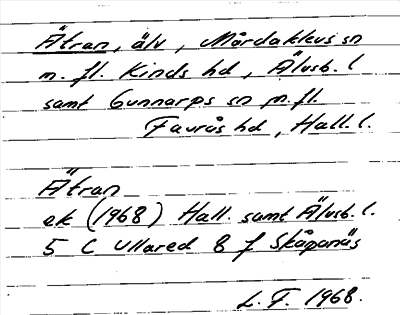 Ätran, älv, Mårdaklevs sn
m. fl. Kinds hd, Älvsb. l
samt Gunnarps sn m.fl.
Faurås hd, Hall. l.
Ätran
ek (1968) Hall. samt Älvsb. l.
5 C Ullared 8 f Skåpanäs
L. F. 1968.